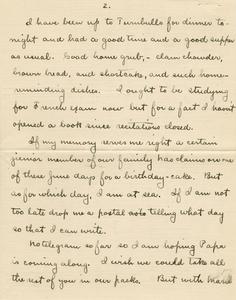 2.
I have been up to Turnbulls for dinner to-
night and had a good time and a good supper
as usual. Good home grub, - clam chowder,
brown bread, and shortcake, and such home-
reminding dishes. I ought to be studying
for French exam now but for a fact I haven't
opened a book since recitations closed.
If my memory serves me right a certain
junior member of our family has claims on one
of these June days for a birthday-cake. But
as for which day, I am at sea. If I am not
too late drop me a postal note telling what day
so that I can write.
No telegram so far so I am hoping Papa
is coming along. I wish we could take all
the rest of you in our packs. But with